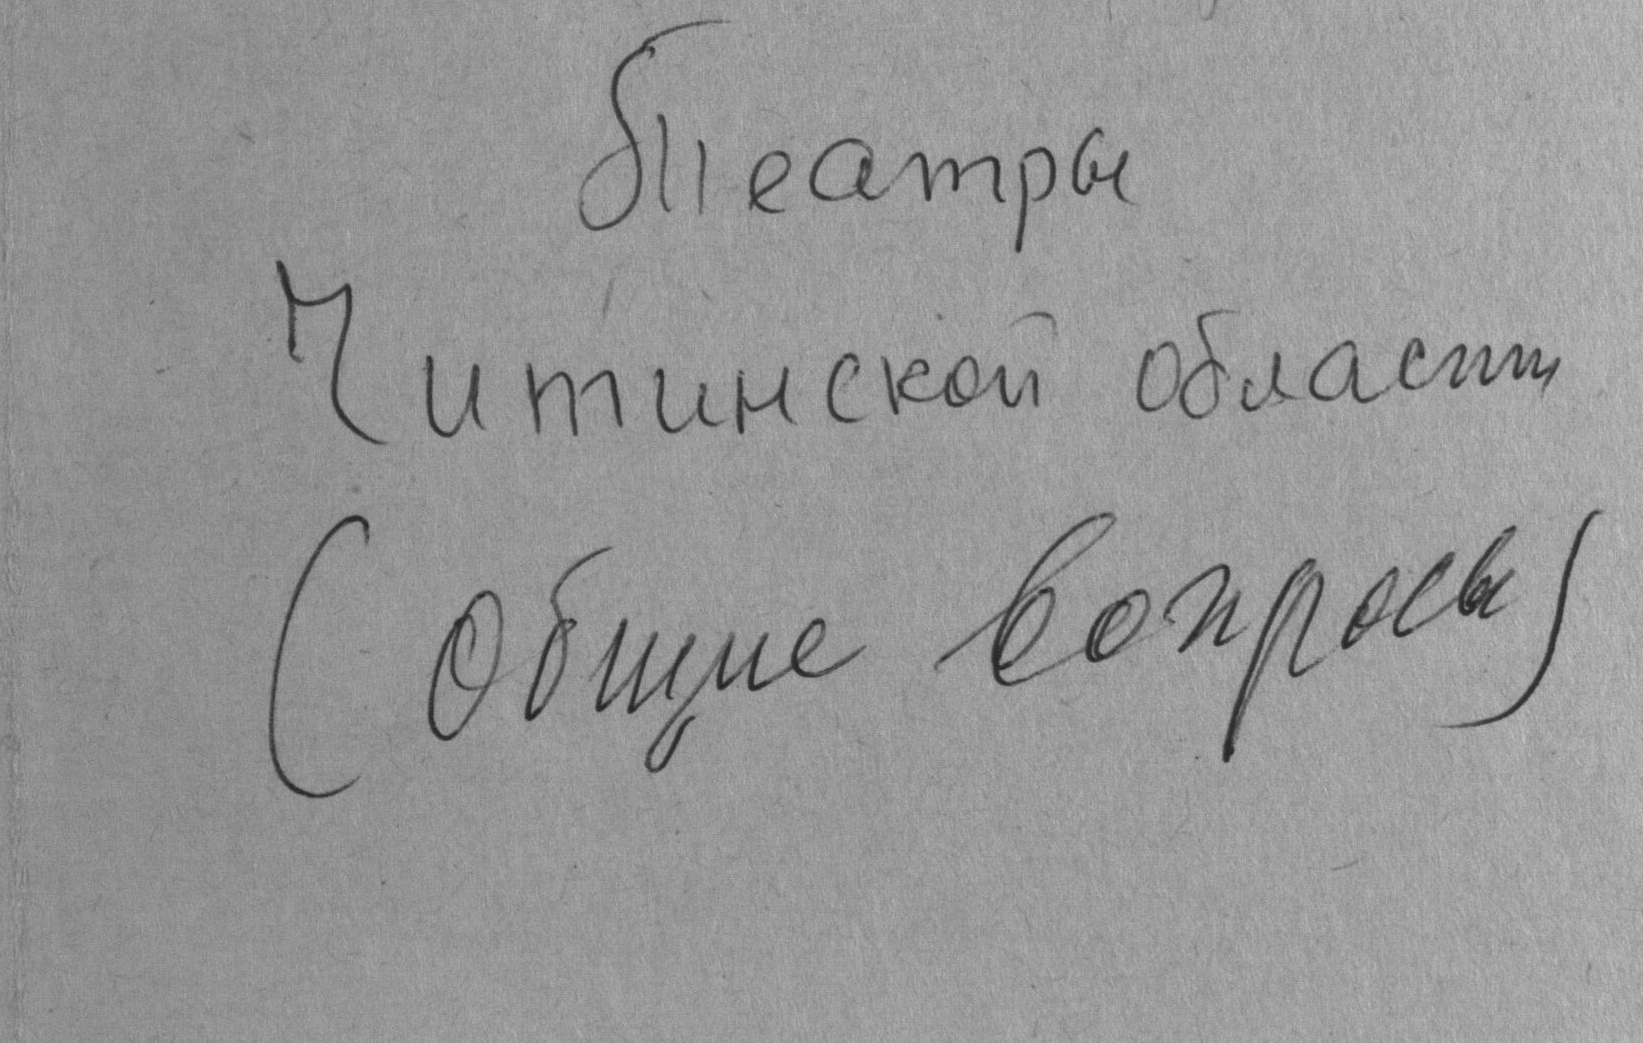 Театры
Читинской области
(Общие вопросы)